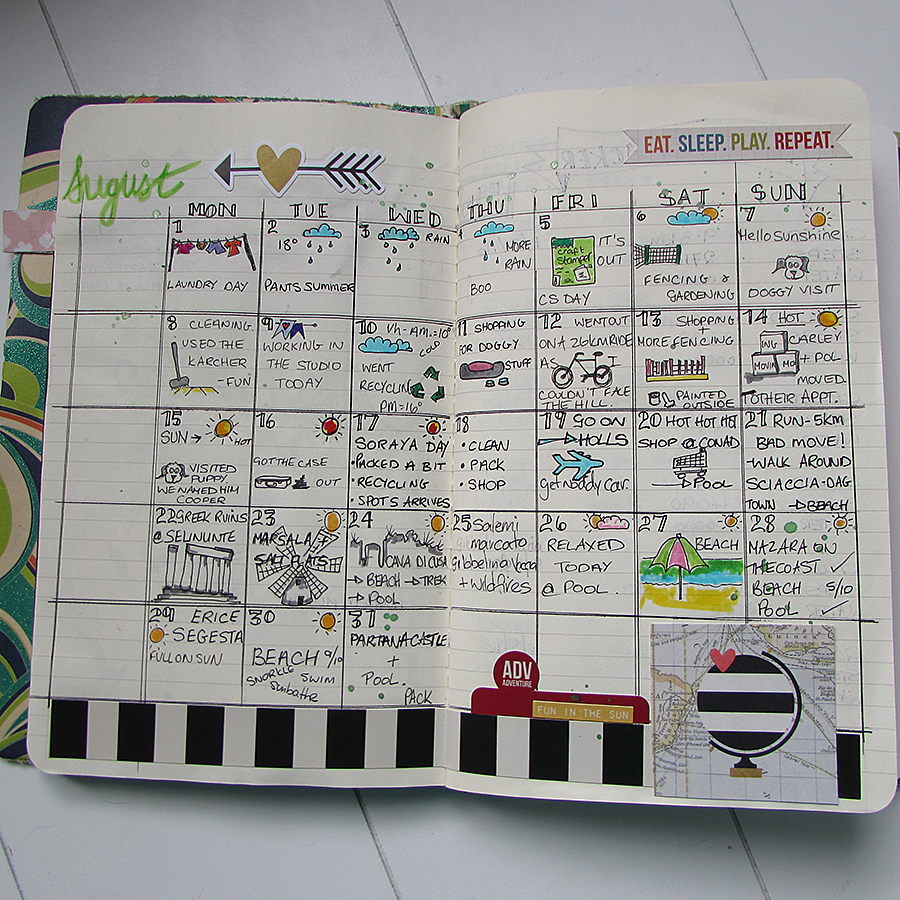 August
EAT. SLEEP. PLAY. REPEAT.
MON TUE WED THU FRI SAT SUN
1
LAUNDRY DAY
2
18°
PANTS SUMMER
3
RAIN
MORE
RAIN
BOO
5
IT'S
OUT
craft
Stamper
CS DAY
6
FENCING &
GARDENING
7
Hello Sunshine
DOGGY VISIT
8 CLEANING
USED THE
KARCHER
-FUN
9
WORKING IN
THE STUDIO
TODAY
10 Uh-AM.=10°
COLD
WENT
RECYCLING
PM=16°
11 SHOPPING
FOR DOGGY
STUFF
12 WENT OUT
ON A 26KM RIDE
AS
COULDN'T FACE
THE HILL.
13 SHOPPING
+
MORE FENCING
PAINTED
OUTSIDE
14 HOT
CARLEY
+ POL
MOVED
TO THEIR APPT.
15
SUN → HOT
VISITED
PUPPY.
WE NAMED HIM
COOPER
16
GOT THE CASE
OUT
17
SORAYA DAY
• PACKED A BIT
• RECYCLING
• SPOTS ARRIVES
18
• CLEAN
• PACK
• SHOP
19 GO ON
HOLLS
get noddy car.
20 HOT HOT HOT
SHOP @ CONAD
→ POOL
21 RUN-5KM
BAD MOVE!
-WALK AROUND
SCIACCIA-DAG
TOWN → BEACH
22 GREEK RUINS
@ SELINUNTE
23
MARSALA &
SALT
24
CAVA DI CUSA
→ BEACH → TREK
→ POOL
25 Salemi
marcato
Gibbelina Vecca
+ Wildfires
26
RELAXED
TODAY
@ POOL
27
BEACH
28
MAZARA ON
THE COAST ✓
BEACH 5/10
POOL ✓
29 ERICE
SEGESTA
FULL ON SUN
30
BEACH 9/10
SNORKLE SWIM
Sunbathe
31
PARTANA CASTLE
+
POOL.
PACK
ADV
ADVENTURE
FUN IN THE SUN